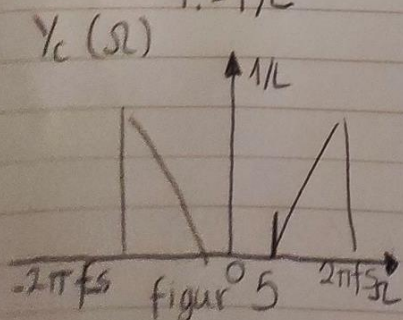 Yc (Ω)
1/L
-2πfs 0 2πfs Ω
figur 5